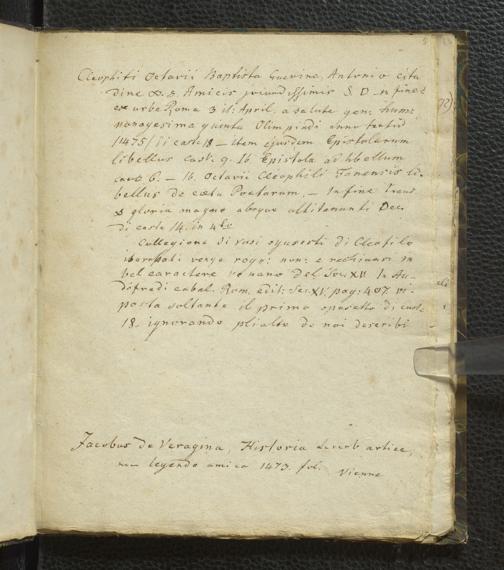 Cleophili Octavii Baptista Guerino, Antonio Cita
dine & S. Amicis jucundissimis S. D. in fine:
ex urbe Roma 3 id: April. a salute gen: hum:
nonagesima quinta Olimpiadi anno tertio
1475/ di cart: 18 - item ejusdem Epistolarum
libellus cart: 9. Ib. Epistola ad libellum
cart: 6. - Ib. Octavii Cleophili Fanensis li-
bellus de coetu Poetarum, - In fine Laus
& gloria magno absque altitonanti Deo
di carte 14. in 4to
Collezione di rari opuscoli di Cleofilo
del Sec. XV
Rom. edit: Sec. XV. pag: 407. ri-
porta soltanto il primo opuscolo di cart:
18. ignorando gli altri da noi descritti
Jacobus De Veragina, Historia
1473. fol.
Vienne